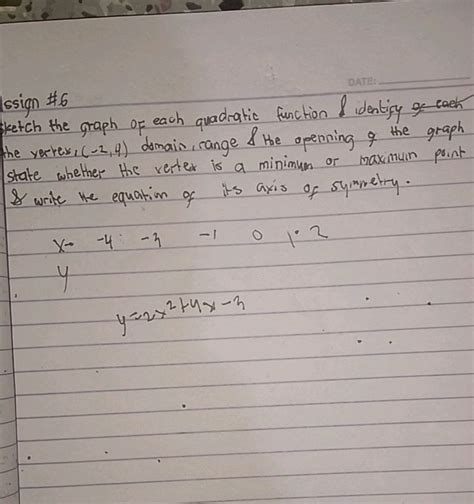 DATE:
ssign #6
sketch the graph of each quadratic function & identify
the vertex, (-2,4) domain, range & the openning of the graph
state whether the vertex is a minimum or maximum point
& write the equation of its axis of symmetry.
x -4 -3 -1 0 1 2
y
y=2x²+4x-3